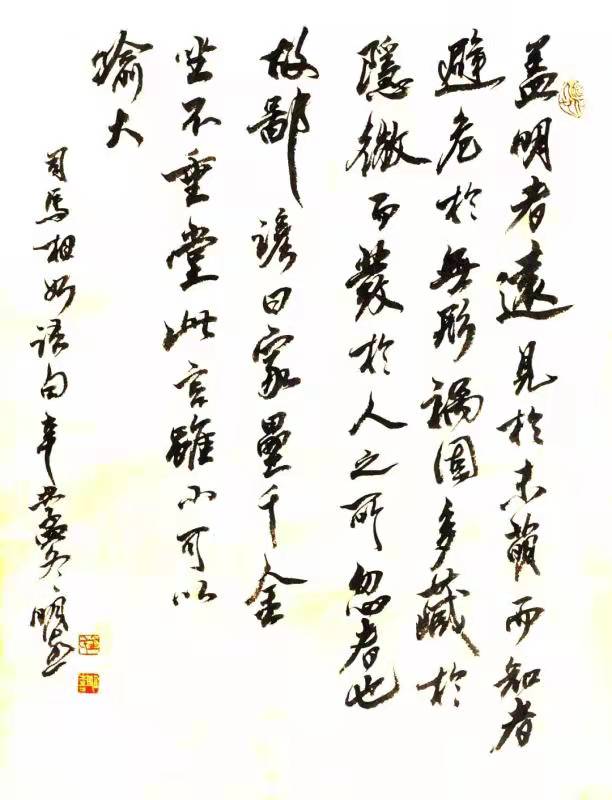 盖明者遠見於未萌而知者
避危於無形禍固多藏於
隱微而發於人之所忽者也
故鄙諺曰家累千金
坐不垂堂此言雖小可以
喻大
司馬相如語句辛丑孟冬明